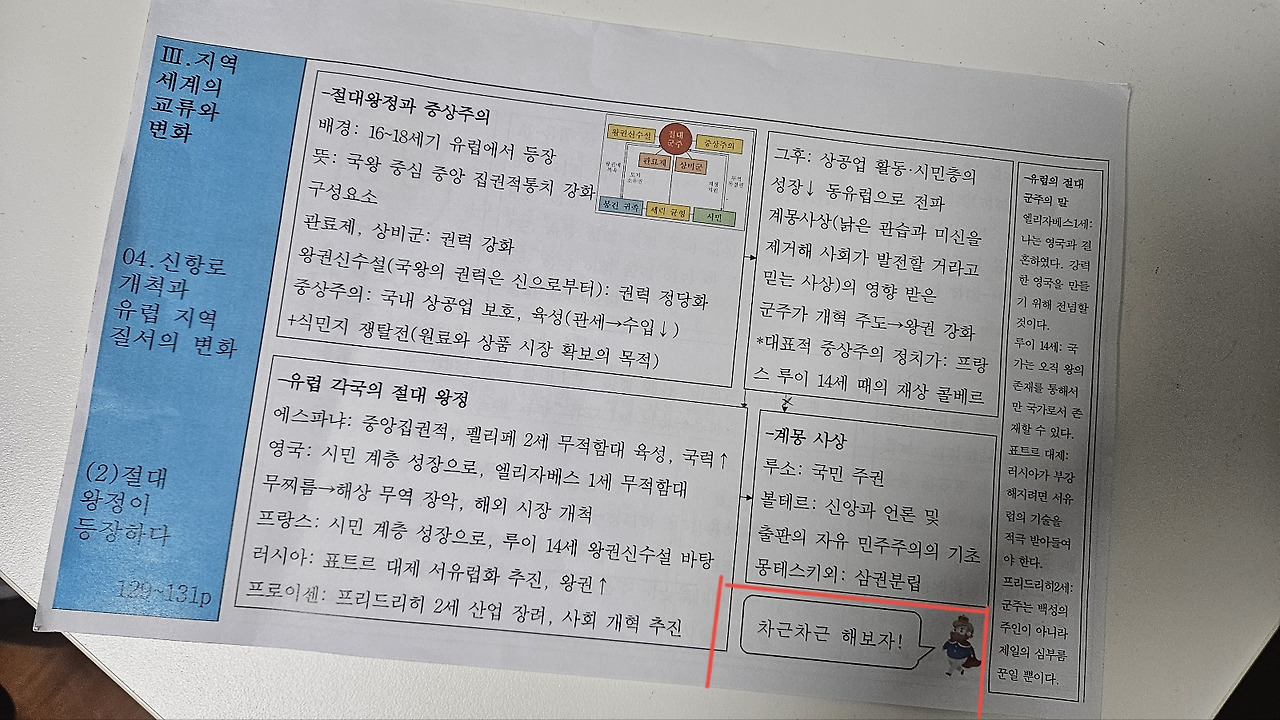 III.지역
세계의
교류와
변화
04.신항로
개척과
유럽 지역
질서의 변화
(2)절대
왕정이
등장하다
129~131p
-절대왕정과 중상주의
배경: 16~18세기 유럽에서 등장
뜻: 국왕 중심 중앙 집권적통치 강화
구성요소
관료제, 상비군: 권력 강화
왕권신수설(국왕의 권력은 신으로부터): 권력 정당화
중상주의: 국내 상공업 보호, 육성(관세→수입↓)
+식민지 쟁탈전(원료와 상품 시장 확보의 목적)
왕권신수설
절대
군주
중상주의
관료제
상비군
봉건 귀족
세력 균형
시민
-유럽 각국의 절대 왕정
에스파냐: 중앙집권적, 펠리페 2세 무적함대 육성, 국력↑
영국: 시민 계층 성장으로, 엘리자베스 1세 무적함대
무찌름→해상 무역 장악, 해외 시장 개척
프랑스: 시민 계층 성장으로, 루이 14세 왕권신수설 바탕
러시아: 표트르 대제 서유럽화 추진, 왕권↑
프로이센: 프리드리히 2세 산업 장려, 사회 개혁 추진
그후: 상공업 활동·시민층의
성장↓ 동유럽으로 전파
계몽사상(낡은 관습과 미신을
제거해 사회가 발전할 거라고
믿는 사상)의 영향 받은
군주가 개혁 주도→왕권 강화
*대표적 중상주의 정치가: 프랑
스 루이 14세 때의 재상 콜베르
-계몽 사상
루소: 국민 주권
볼테르: 신앙과 언론 및
출판의 자유 민주주의의 기초
몽테스키외: 삼권분립
차근차근 해보자!
-유럽의 절대
군주의 말
엘리자베스1세:
나는 영국과 결
혼하였다. 강력
한 영국을 만들
기 위해 전념할
것이다.
루이 14세: 국
가는 오직 왕의
존재를 통해서
만 국가로서 존
재할 수 있다.
표트르 대제:
러시아가 부강
해지려면 서유
럽의 기술을
적극 받아들여
야 한다.
프리드리히2세:
군주는 백성의
주인이 아니라
제일의 심부름
꾼일 뿐이다.